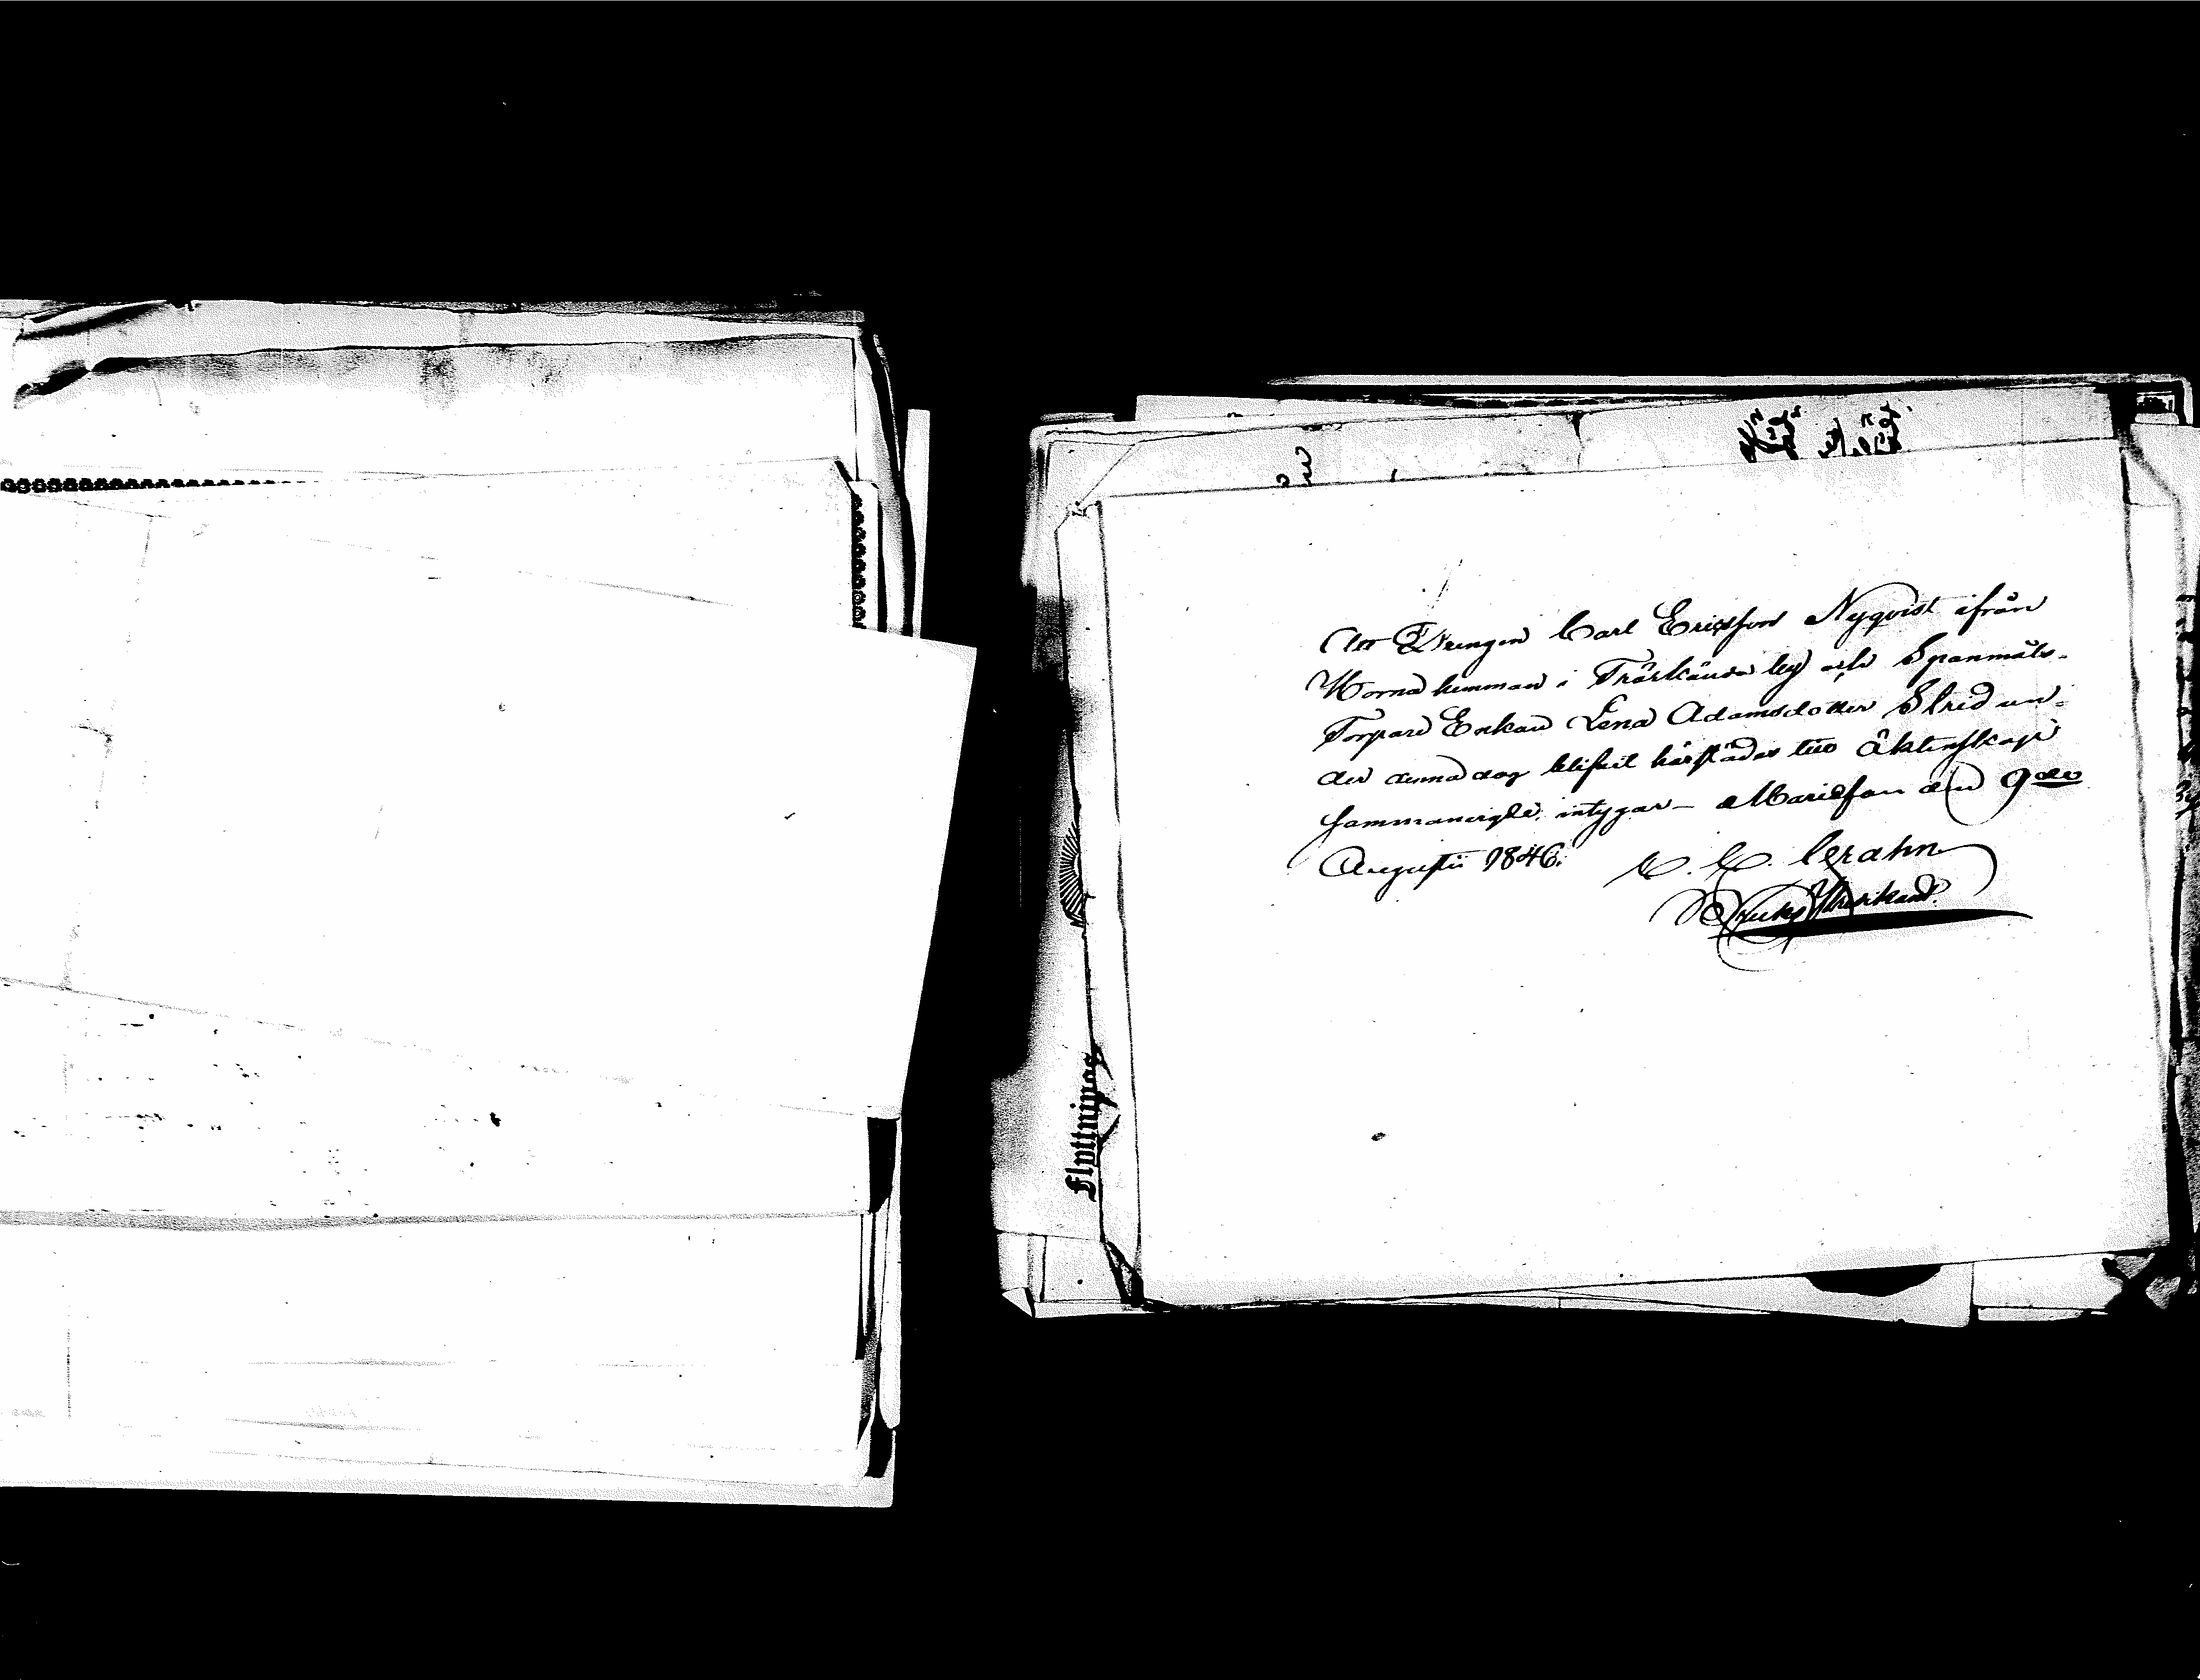 Att Drengen Carl Ericsson Nyqvist ifrån
Norra hemman i Träskända by och Spanmåls-
Torpare Enkan Lena Adamsdotter Strid un-
der denna dag blifvit härstädes till Äktenskap
sammanvigde, intygar – Mariefors den 9de
Augusti 1846.
Grahn
Bruks
Flyttnings